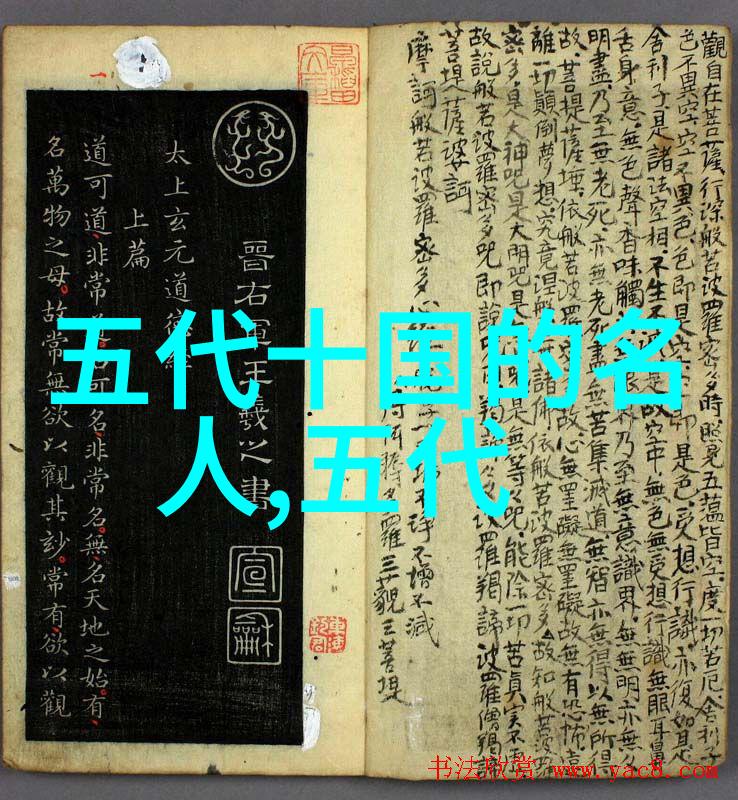 五代十国的名
人,五代
觀自在菩薩行深般若波羅密多時照見五蘊皆空度一切苦厄舍利子
色不異空空不異色色即是空即是色受想行識亦復如是
舍利子是諸法空相不生不是故空中無色無受想行識無眼耳鼻
舌身意無色聲香味觸界乃至無意識界無無明亦無
明盡乃至無老死亦無老死盡無苦集滅道無智亦無得以無所得
故菩提薩埵依般若波羅故心無罣礙無罣礙故無有恐怖遠
離一切顛倒夢想究竟涅槃諸佛依般若波羅密多故知般若波羅
密多是大神咒是大明咒是是無等等咒能除一切苦真實不虛
故說般若波羅密多咒即說羯諦波羅羯諦波羅僧羯諦
菩提薩婆訶
摩訶般若波羅密多心經不增不減
得阿耨多羅三藐三菩提
晉右軍王羲之書
宣龢
太上玄元道德經
上篇
道可道非常道可名非常名無名天地之始有
名萬物之母故常無欲以觀其妙常有欲以觀
书法欣赏 www.yac8.com